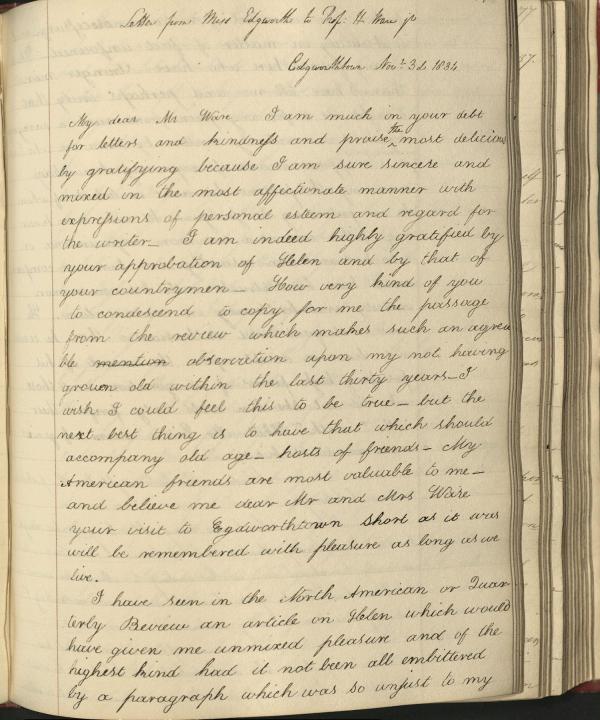 Letter from Miss Edgworth to Prof: H. Ware jr
Edgworthtown Novr 3d 1834
My dear Mr Ware I am much in your debt
for letters and kindness and praise the most delicious
by gratifying because I am sure sincere and
mixed in the most affectionate manner with
expressions of personal esteem and regard for
the writer_ I am indeed highly gratified by
your approbation of Helen and by that of
your countrymen_ How very kind of you
to condescend to copy for me the passage
from the review which makes such an agreea
ble mention obsercretion upon my not having
grown old within the last thirty years_ I
wish I could feel this to be true_ but the
next best thing is to have that which should
accompany old age_ hosts of friends_ My
American friends are most valuable to me_
and believe me dear Mr and Mrs Ware
your visit to Egdworthtown short as it was
will be remembered with pleasure as long as we
live.
I have seen in the North American or Quar
terly Review an article on Helen which would
have given me unmixed pleasure and of the
highest kind had it not been all embittered
by a paragraph which was so unjust to my